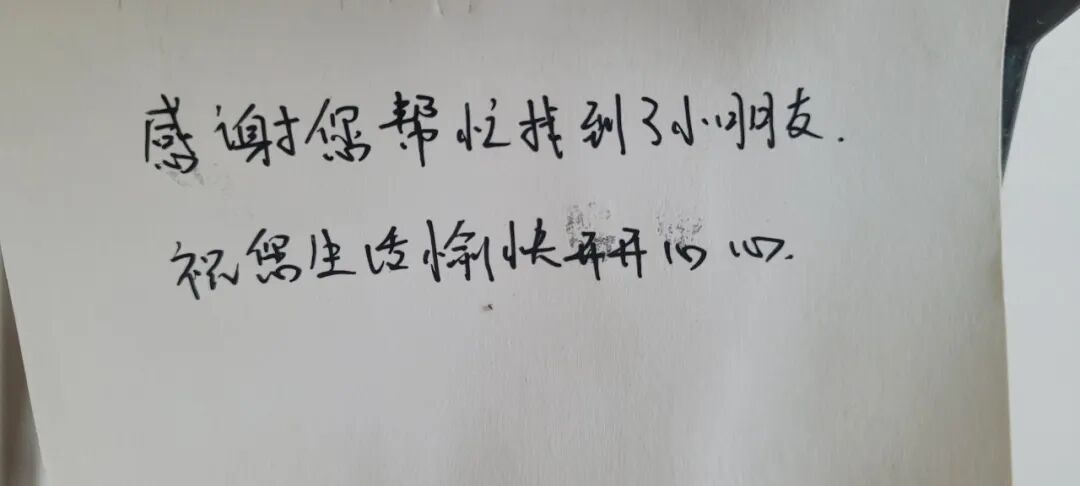 感谢您帮忙找到了小朋友.
祝您生活愉快开开心心.